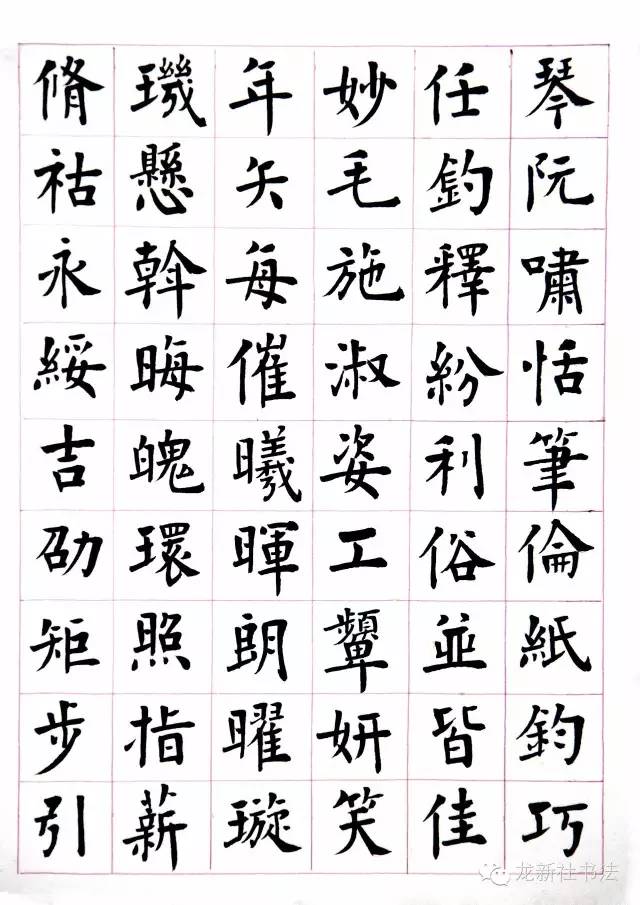 琴阮嘯恬筆倫紙鈞巧
任釣釋紛利俗並皆佳
妙毛施淑姿工顰妍笑
年矢每催曦暉朗曜璇
璣懸斡晦魄環照指薪
脩祜永綏吉劭矩步引
龙新社书法